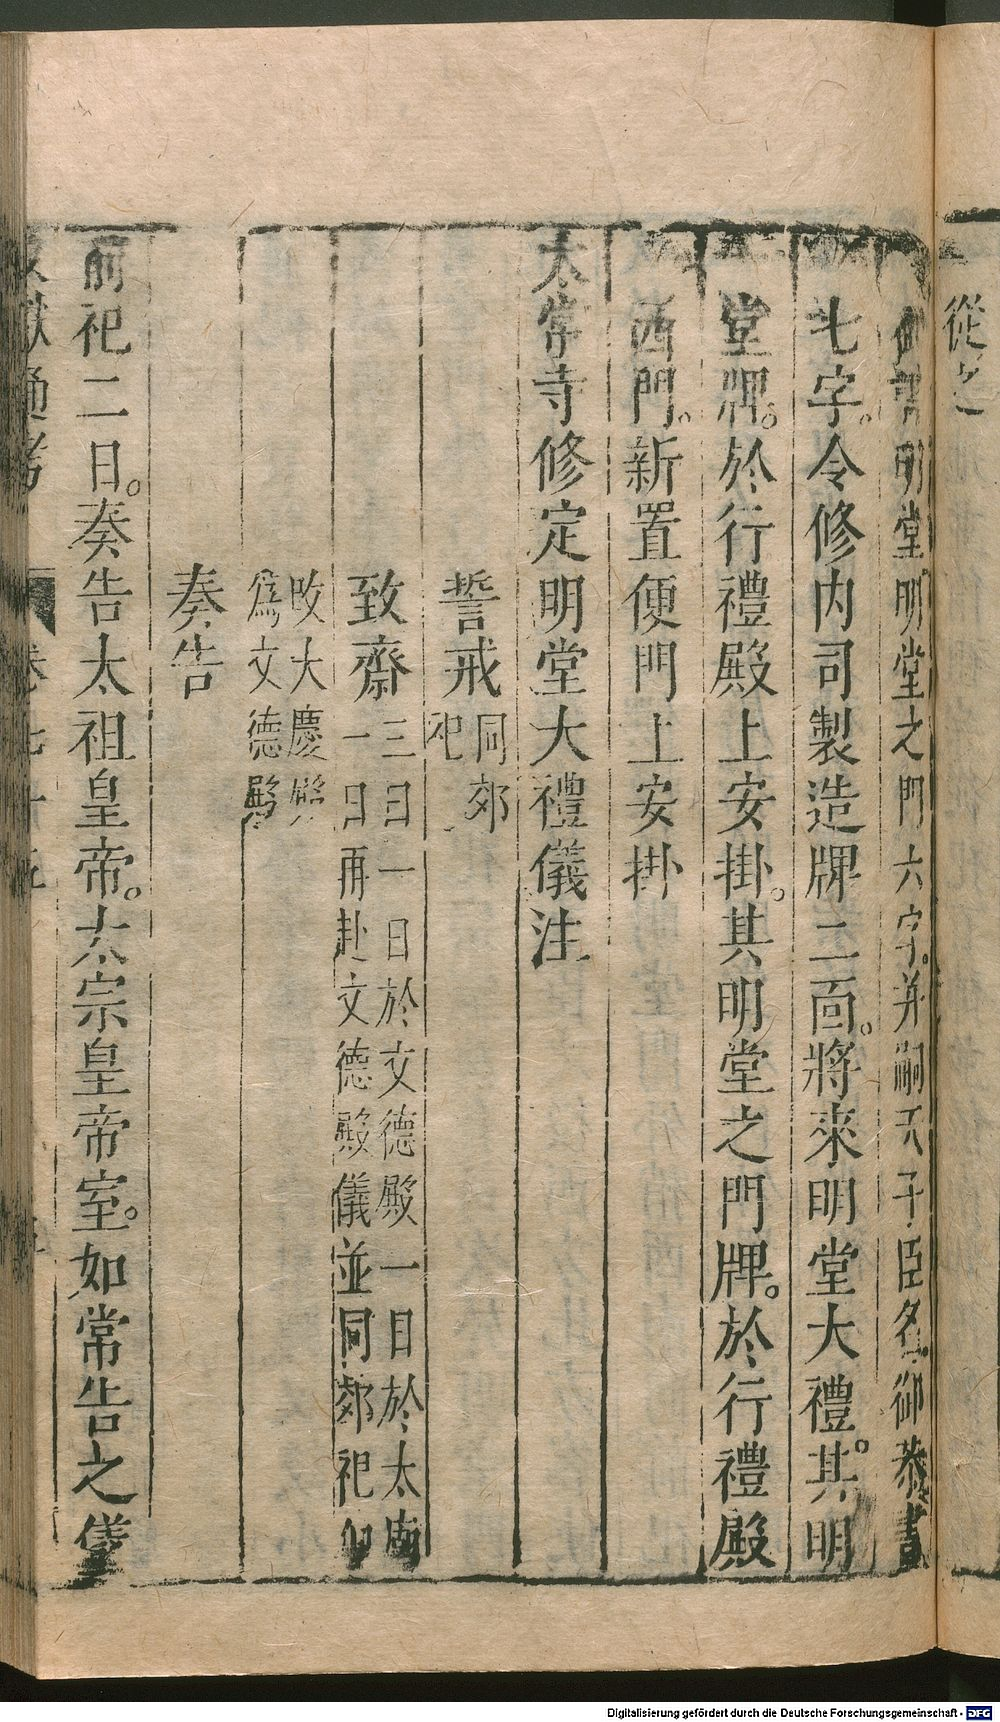 從之
御書明堂明堂之門六字。并嗣天子臣名。御恭書
七字。令修内司製造牌二面。將來明堂大禮。其明
堂牌。於行禮殿上安掛。其明堂之門牌。於行禮殿
西門。新置便門上安掛
太常寺修定明堂大禮儀注
誓戒 同郊
祀
致齋 三日一日於文德殿一日於太廟
一日再赴文德殿儀並同郊祀
改大慶殿
爲文德殿
奏告
前祀二日。奏告太祖皇帝。太宗皇帝室。如常告之儀
文獻通考
卷七十五
Digitalisierung gefördert durch die Deutsche Forschungsgemeinschaft - DFG